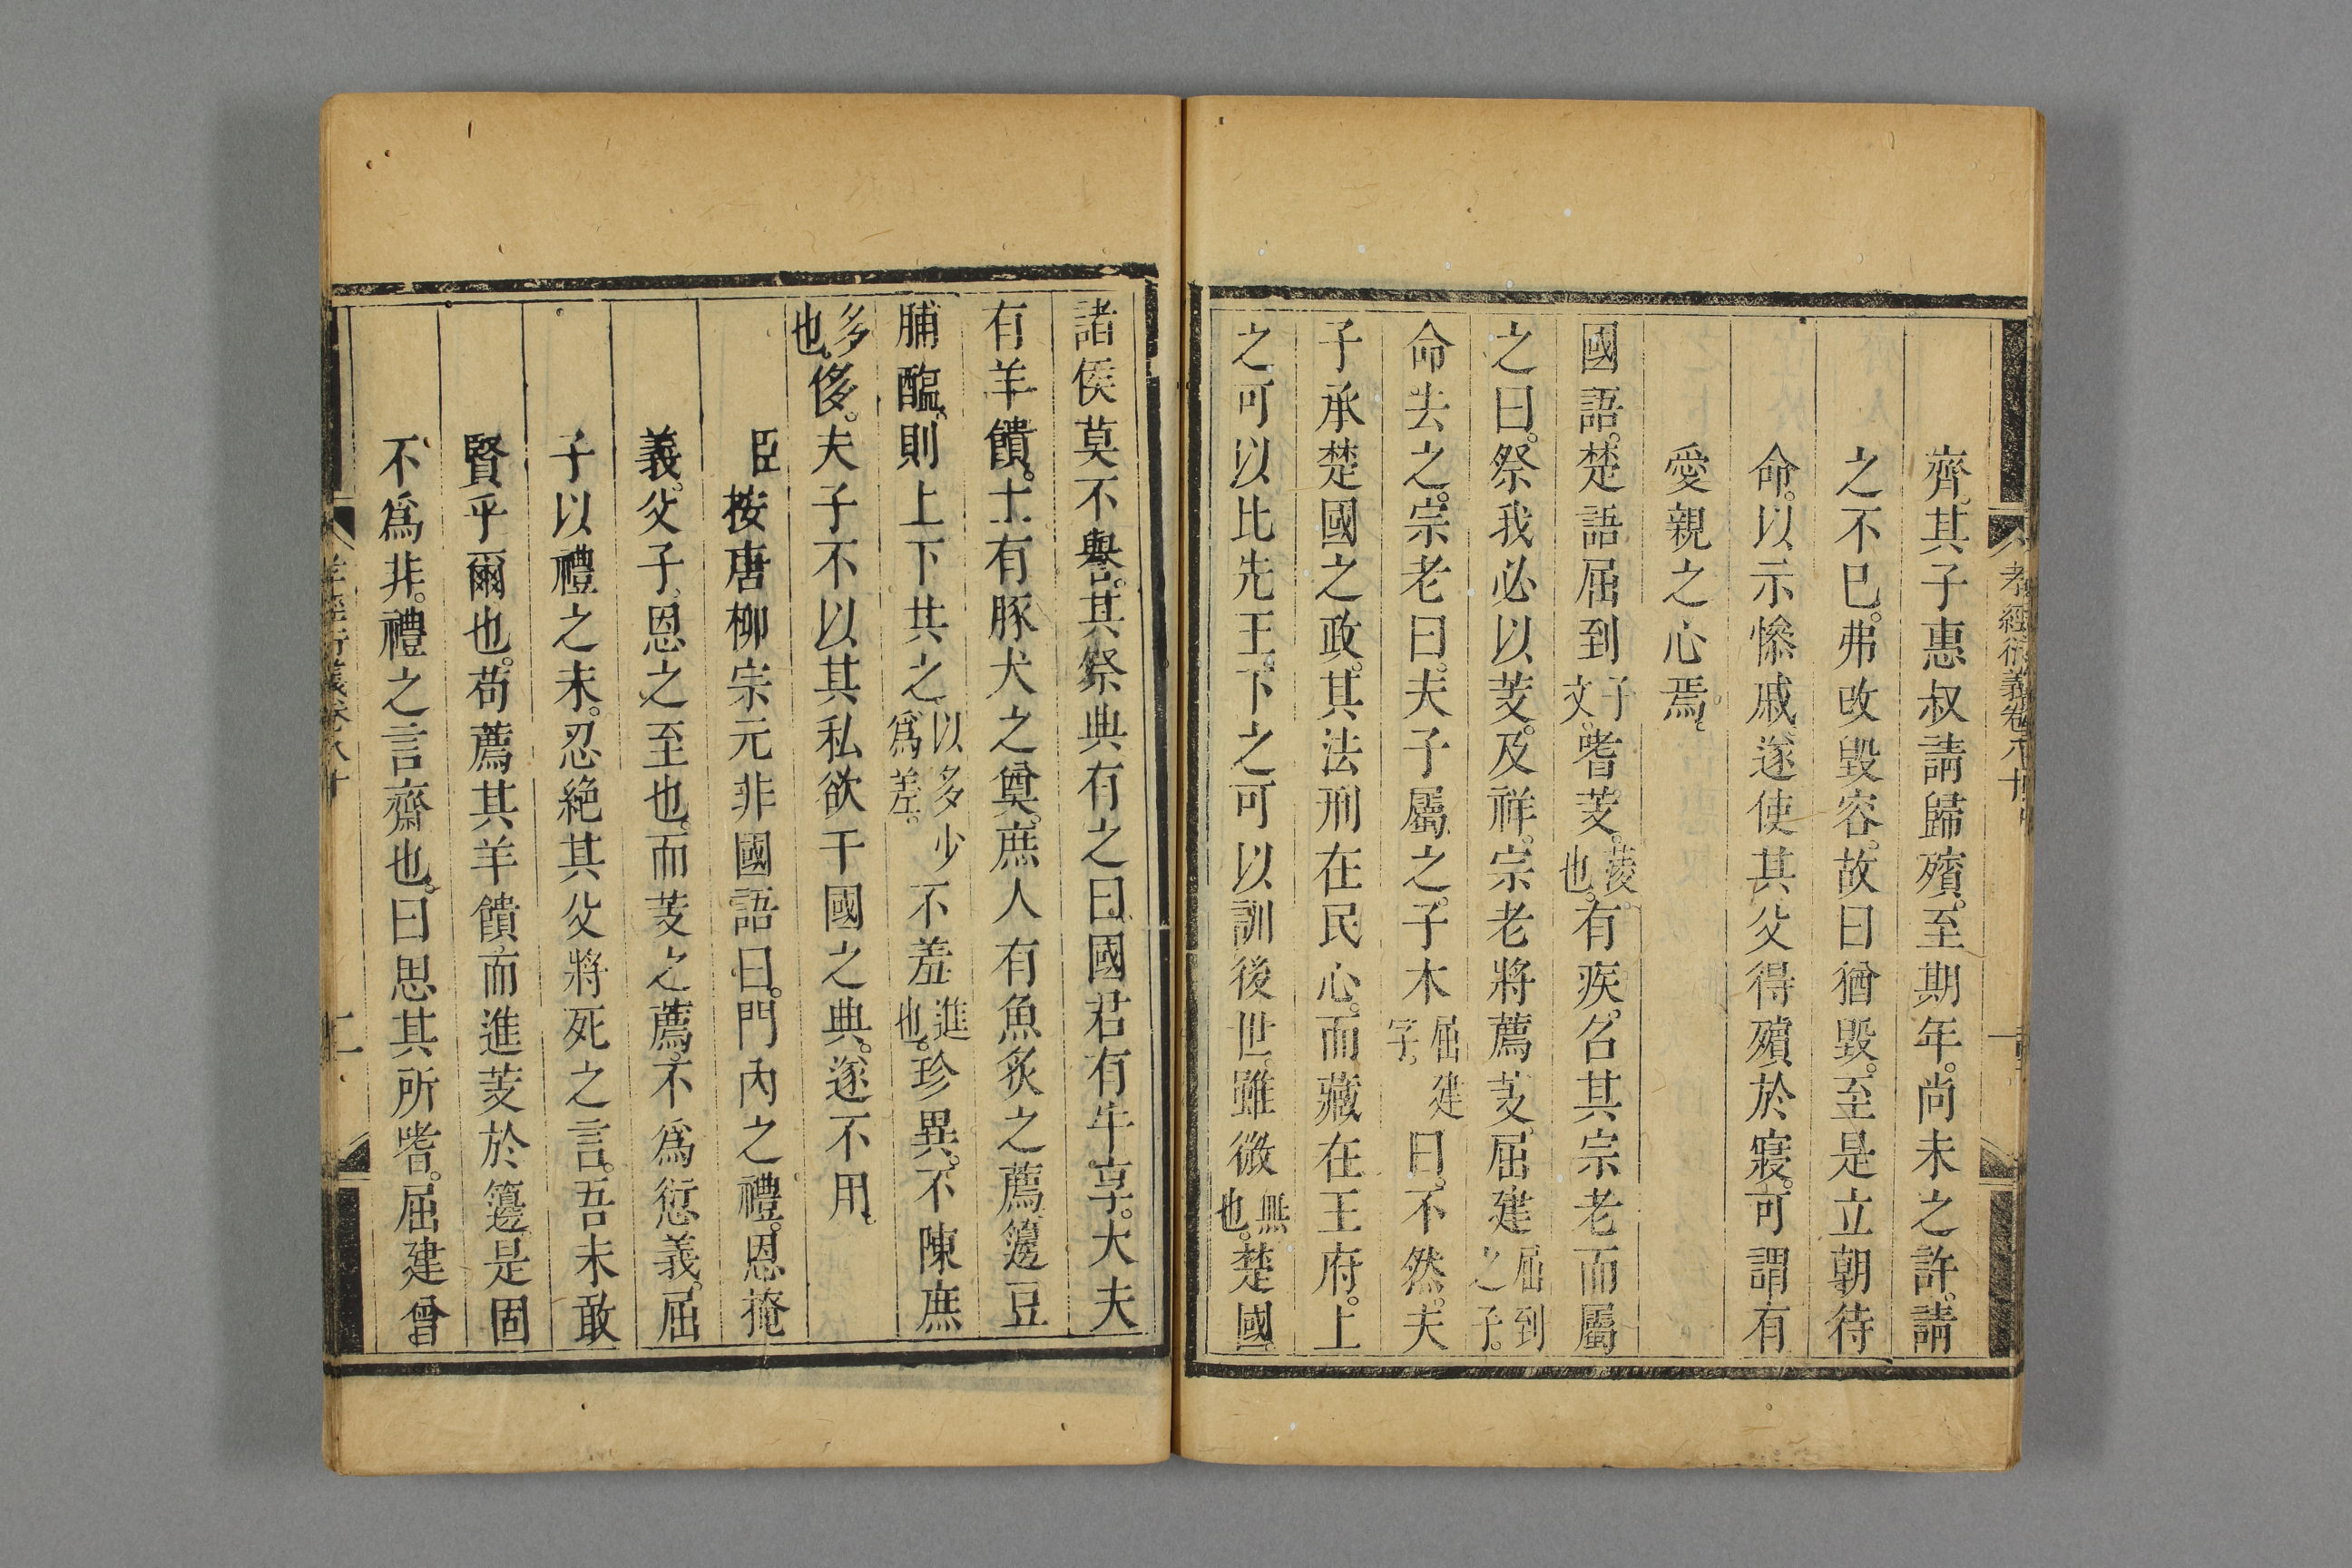 孝經衍義卷八十
齊其子惠叔請歸殯至期年尚未之許請
之不巳弗改毀容故曰猶毀至是立朝待
命以示慘戚遂使其父得殯於寢可謂有
愛親之心焉
國語楚語屈到子文嗜芰菱也有疾召其宗老而屬
之曰祭我必以芰及祥宗老將薦芰屈建屈到之子
命去之宗老曰夫子屬之子木屈建字曰不然夫
子承楚國之政其法刑在民心而藏在王府上
之可以比先王下之可以訓後世雖微無也楚國
諸侯莫不譽其祭典有之曰國君有牛享大夫
有羊饋士有豚犬之奠庶人有魚炙之薦籩豆
脯醢則上下共之以多少爲差不羞進也珍異不陳庶
多也侈夫子不以其私欲干國之典遂不用
臣按唐柳宗元非國語曰門內之禮恩掩
義父子恩之至也而芰之薦不爲愆義屈
子以禮之末忍絕其父將死之言吾未敢
賢乎爾也苟薦其羊饋而進芰於籩是固
不爲非禮之言齋也曰思其所嗜屈建曾
孝經衍義卷八十